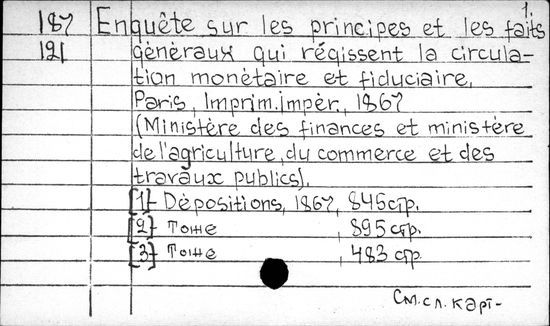 1.
187 Enquête sur les principes et les faits
121 généraux qui régissent la circula-
tion monétaire et fiduciaire,
Paris, Imprim.impér, 1867
(Ministère des finances et ministère
de l'agriculture, du commerce et des
travaux publics).
[1]- Dépositions, 1867, 845стр.
[2]- Тоже , 895 стр.
[3]- Тоже , 483 стр.
См. сл. карт-